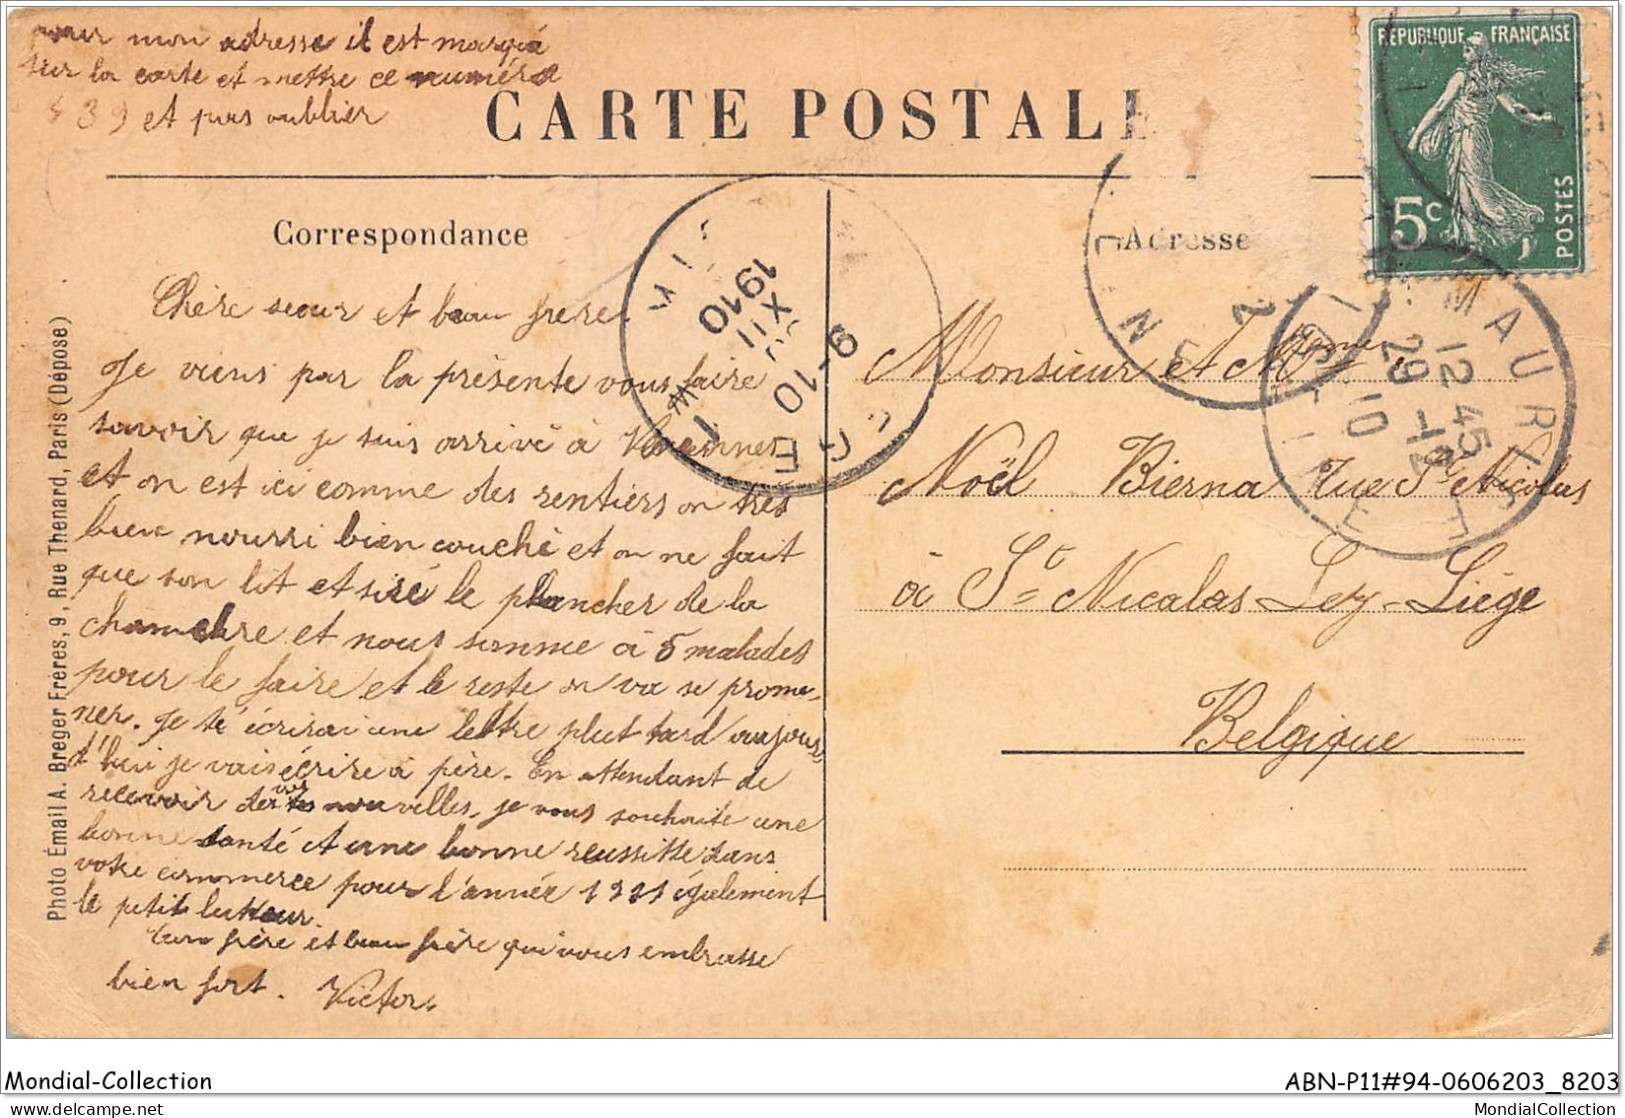 pour mon adresse il est marqué
sur la carte et mettre ce numéro
39 et pas oublier
CARTE POSTALE
RÉPUBLIQUE FRANÇAISE
5c
POSTES
Correspondance
Adresse
Chère sœur et beau frère.
Je viens par la présente vous faire
savoir que je suis arrivé à Vincennes
et on est ici comme des rentiers on très
bien nourri bien couché et on ne fait
que son lit et siré le plancher de la
chambre et nous somme à 5 malades
pour le faire et le reste on va se prome-
ner. Je t'écrirai une lettre plut tard aujour
d'hui je vais écrire à père. En attendant de
recevoir de vos nouvelles, je vous souhaite une
bonne santé et une bonne reussitte dans
votre commerce pour l'année 1911 également
le petit
frère et beau frère qui vous embrasse
bien fort. Victor.
Monsieur et Mme
Noël Bierna rue St Nicolas
à St Nicolas Ley-Liége
Belgique
1910
XII
9-10
MAURICE
12 45
29 -12
10
SEINE
Photo Émail A. Breger Frères, 9, Rue Thenard, Paris (Déposé)
Mondial-Collection
ABN-P11#94-0606203_8203
MondialCollection
MondialCollection